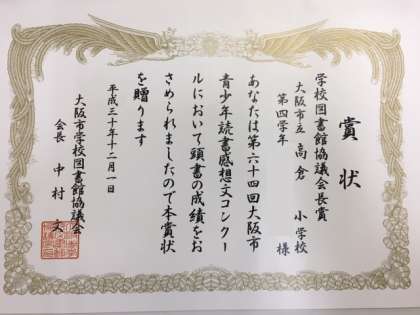 賞状
学校図書館協議会長賞
大阪市立 高倉 小学校
第四学年 様
あなたは第六十四回大阪市
青少年読書感想文コンクー
ルにおいて頭書の成績をお
さめられましたので本賞状
を贈ります
平成三十年十二月一日
大阪市学校図書館協議会
会長 中村 文